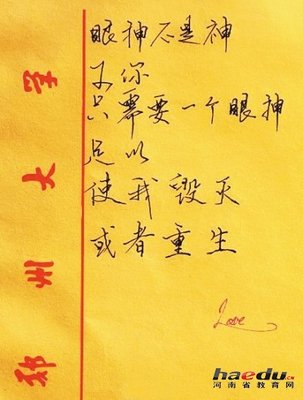 眼神不是神
你
只需要一个眼神
足以
使我毁灭
或者重生
Love
郑州大学
haedu.cn
河南省教育网